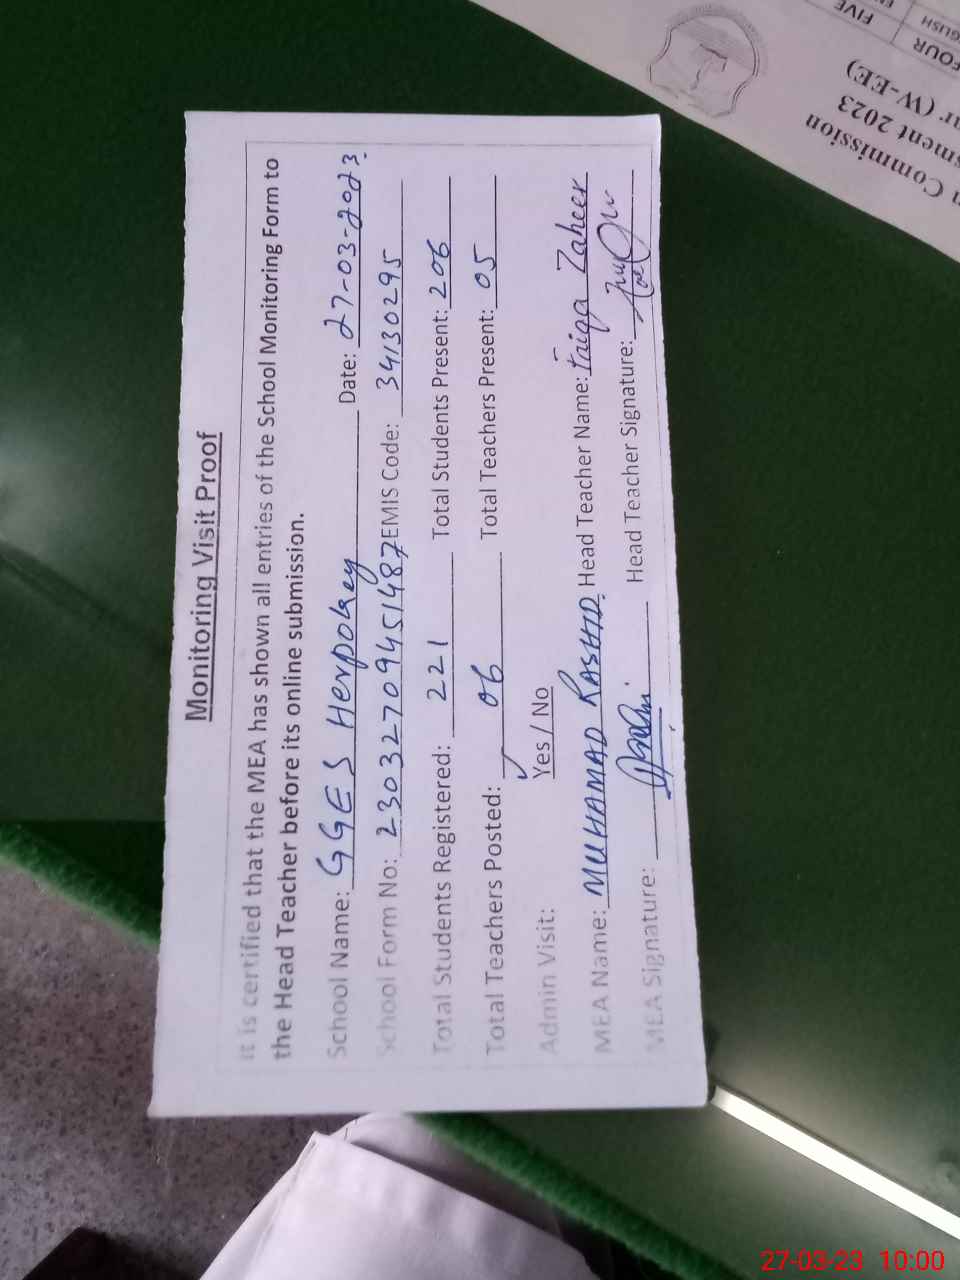 Monitoring Visit Proof
It is certified that the MEA has shown all entries of the School Monitoring Form to
the Head Teacher before its online submission.
School Name: GGES Herpokey Date: 27-03-2023.
School Form No: 23032709451487 EMIS Code: 34130295
Total Students Registered: 221 Total Students Present: 206
Total Teachers Posted: 06 Total Teachers Present: 05
Admin Visit: Yes / No
MEA Name: MUHAMAD RASHID. Head Teacher Name: Faiqa Zaheer
MEA Signature: Head Teacher Signature:
Commission
2023
(W-EE)
FOUR FIVE
27-03-23 10:00